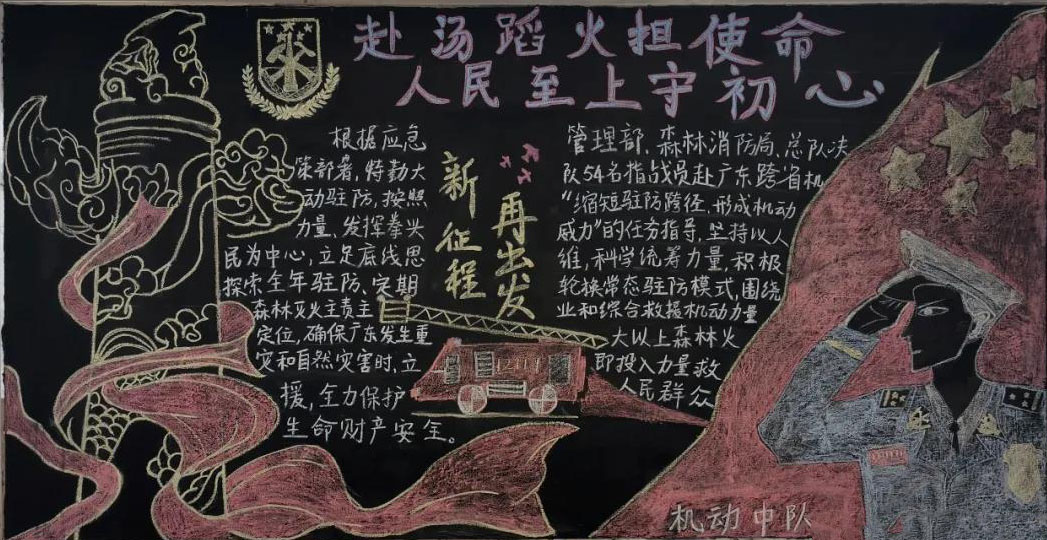 赴汤蹈火担使命
人民至上守初心
新征程
再出发
根据应急管理部、森林消防局、总队决
策部署,特勤大队54名指战员赴广东跨省机
动驻防,按照“缩短驻防跨径,形成机动
力量,发挥拳头威力”的任务指导,坚持以人
民为中心,立足底线思维,科学统筹力量,积极
探索全年驻防、定期轮换常态驻防模式,围绕
森林灭火主责主业和综合救援机动力量
定位,确保广东发生重大以上森林火
灾和自然灾害时,立即投入力量救
援,全力保护人民群众
生命财产安全。
机动中队